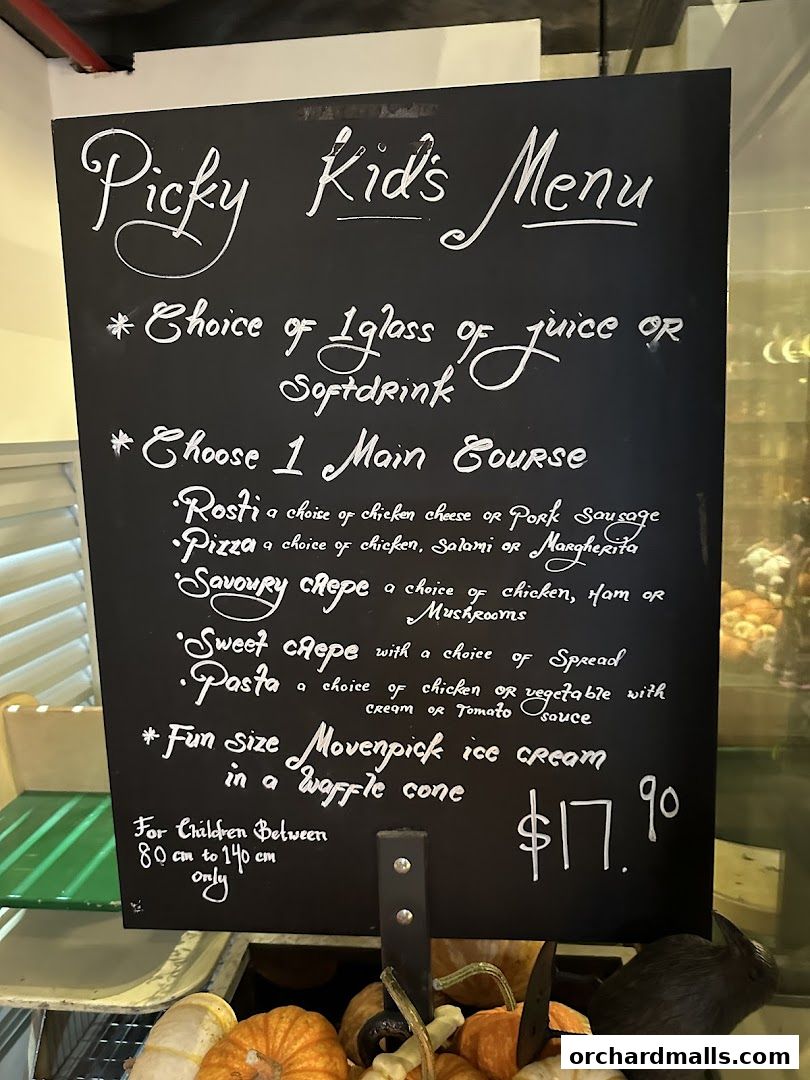 Picky Kid's Menu
* Choice of 1 glass of juice OR
Softdrink
* Choose 1 Main Course
• Rosti a choise of chicken cheese or Pork Sausage
• Pizza a choice of chicken, Salami or Margherita
• Savoury crepe a choice of chicken, Ham or
Mushrooms
• Sweet crepe with a choice of Spread
• Pasta a choice of chicken or vegetable with
cream or Tomato sauce
* Fun size Movenpick ice cream
in a waffle cone
For Children Between
80 cm to 140 cm
only
$17.90
orchardmalls.com